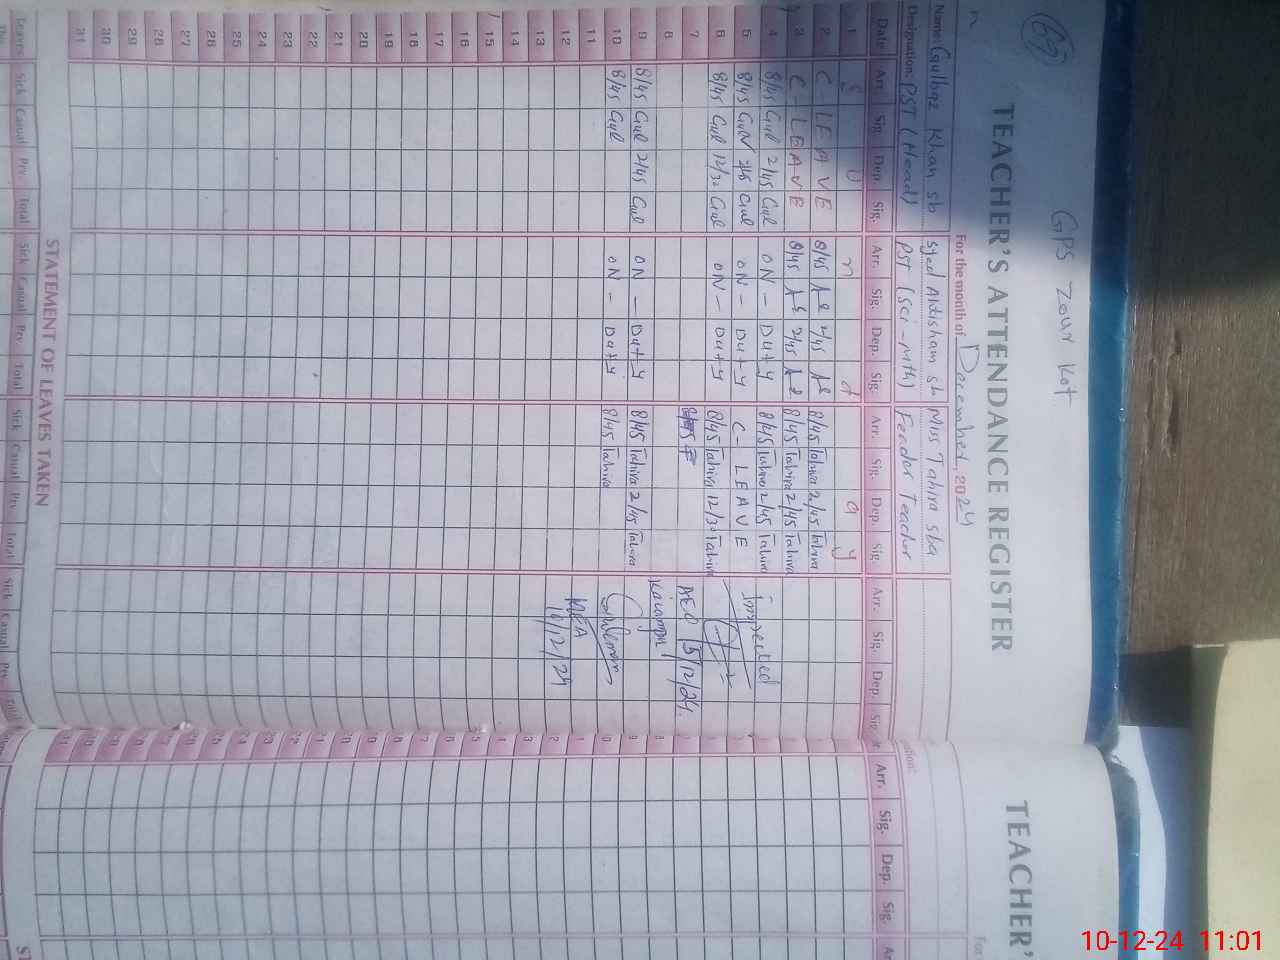 GPS Zour Kot
TEACHER'S ATTENDANCE REGISTER
For the month of December, 2024
Name: Gulbaz Khan sb Syed Ahtisham sb Miss Tahira sba
Designation: PST (Head) PST (Sci-Mth) Feeder Teacher
Date Arr. Sig. Dep. Sig. Arr. Sig. Dep. Sig. Arr. Sig. Dep. Sig. Arr. Sig. Dep. Sig.
1 S u n d a y
2 C - LEAVE 8/45 2/45 8/45 Tahira 2/45 Tahira
3 C - LEAVE 8/45 2/45 8/45 Tahira 2/45 Tahira
4 8/45 Gul 2/45 Gul ON - Duty 8/45 Tahira 2/45 Tahira Inspected
5 8/45 Gul 2/45 Gul ON - Duty C - LEAVE
6 8/45 Gul 12/30 Gul ON - Duty 8/45 Tahira 12/30 Tahira
7 8/45 AEO 5/12/24
8
9 8/45 Gul 2/45 Gul ON - Duty 8/45 Tahira 2/45 Tahira
10 8/45 Gul ON - Duty 8/45 Tahira
11 MEA
12 10/12/24
13
14
15
16
17
18
19
20
21
22
23
24
25
26
27
28
29
30
31
STATEMENT OF LEAVES TAKEN
Leaves Sick Casual Prv. Total Sick Casual Prv. Total Sick Casual Prv. Total Sick Casual Prv. Total
TEACHER'
Arr. Sig. Dep. Sig.
10-12-24 11:01